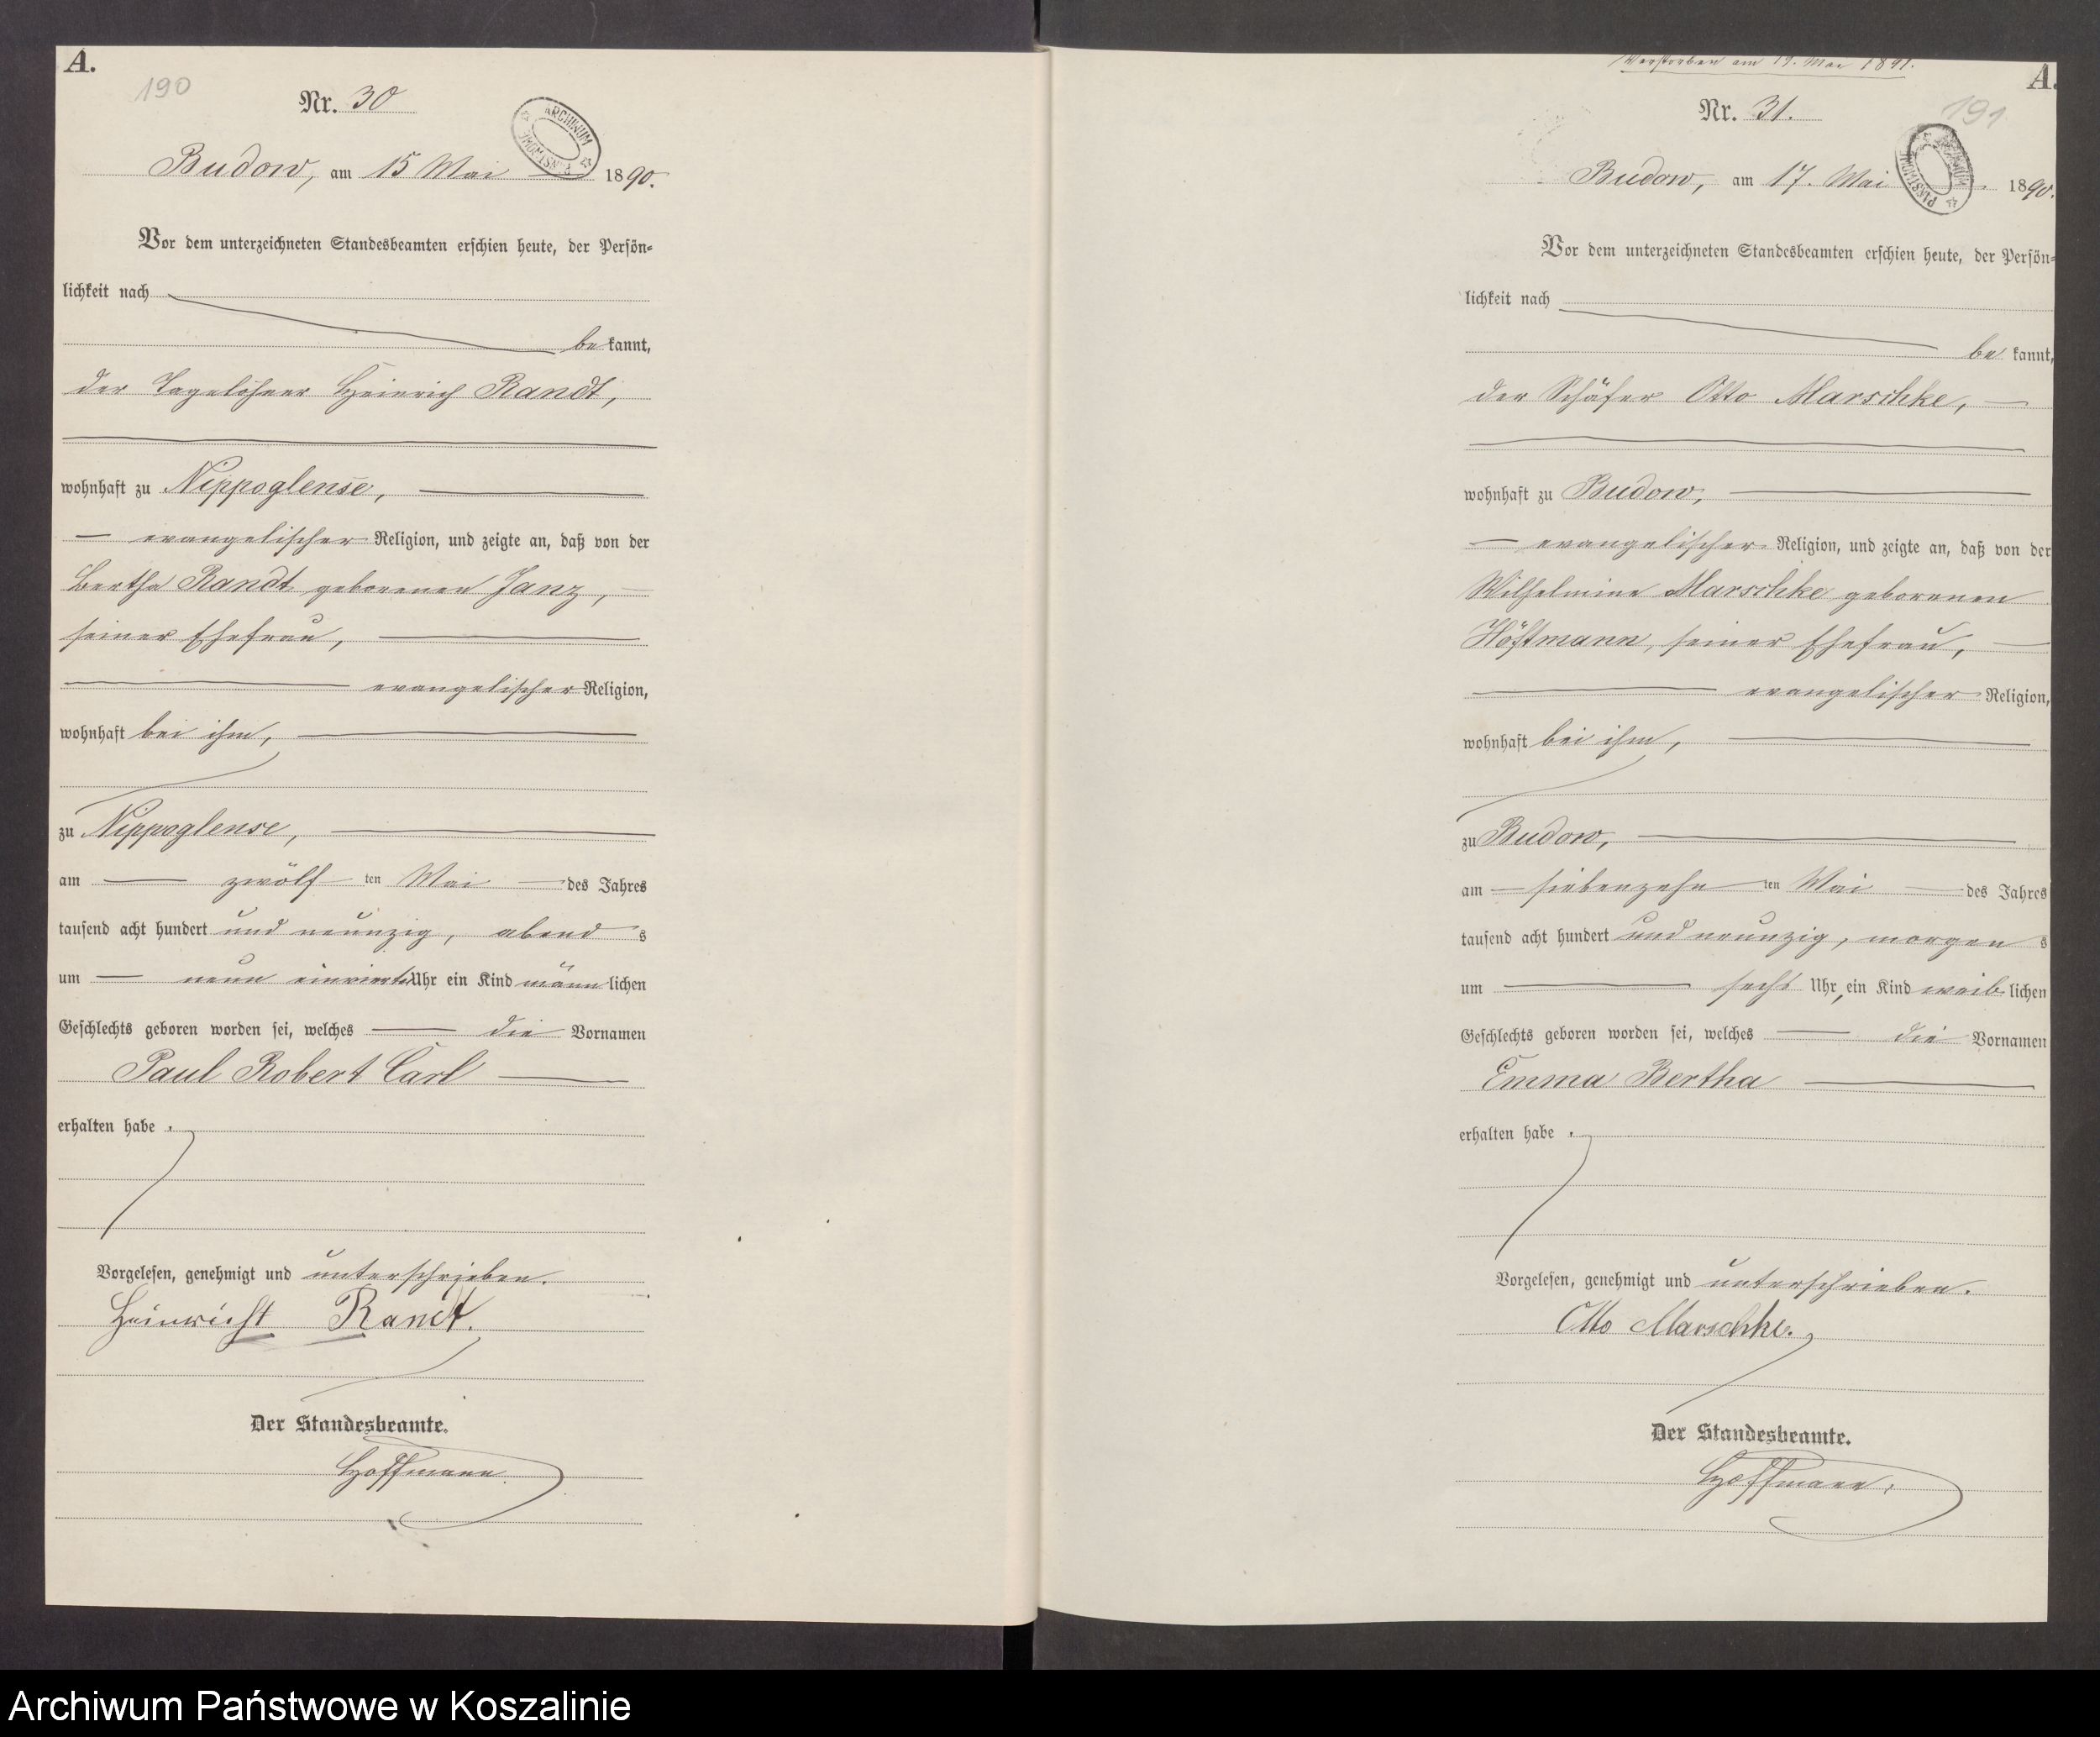 A.
190
Nr. 30
ARCHIWUM
Budow, am 15 Mai 1890.
Vor dem unterzeichneten Standesbeamten erschien heute, der Persön=
lichkeit nach
be kannt,
der Tagelöhner Heinrich Randt,
wohnhaft zu Nippoglense,
evangelischer Religion, und zeigte an, daß von der
Bertha Randt geborenen Janz,
seiner Ehefrau,
evangelischer Religion,
wohnhaft bei ihm,
zu Nippoglense,
am zwölf ten Mai des Jahres
tausend acht hundert und neunzig, abend s
um neun einviertel Uhr ein Kind männ lichen
Geschlechts geboren worden sei, welches die Vornamen
Paul Robert Carl
erhalten habe.
Vorgelesen, genehmigt und unterschrieben.
Heinricht Randt.
Der Standesbeamte.
Hoffmann.
Verstorben am 19. Mai 1891.
A.
191
Nr. 31.
Budow, am 17. Mai 1890.
Vor dem unterzeichneten Standesbeamten erschien heute, der Persön=
lichkeit nach
be kannt,
der Schäfer Otto Marschke,
wohnhaft zu Budow,
evangelischer Religion, und zeigte an, daß von der
Wilhelmine Marschke geborenen
Höftmann, seiner Ehefrau,
evangelischer Religion,
wohnhaft bei ihm,
zu Budow,
am siebenzehn ten Mai des Jahres
tausend acht hundert und neunzig, morgen s
um sechs Uhr, ein Kind weib lichen
Geschlechts geboren worden sei, welches die Vornamen
Emma Bertha
erhalten habe.
Vorgelesen, genehmigt und unterschrieben.
Otto Marschke.
Der Standesbeamte.
Hoffmann.
Archiwum Państwowe w Koszalinie